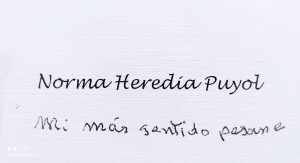 Norma Heredia Puyol
Mi más sentido pesame